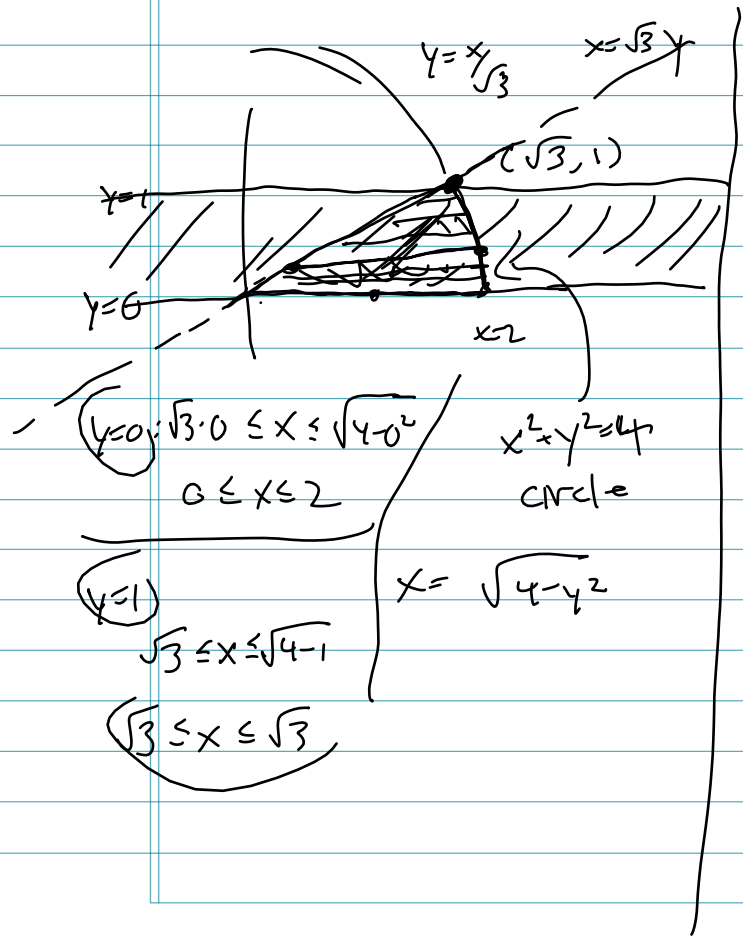 y=x/√3
x=√3 y
(√3, 1)
y=1
y=0
x=2
y=0: √3·0 ≤ x ≤ √4-0²
0 ≤ x ≤ 2
x²+y²=4
circle
x= √4-y²
y=1
√3 ≤ x ≤ √4-1
√3 ≤ x ≤ √3